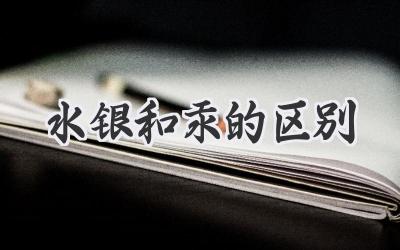 水银和汞的区别